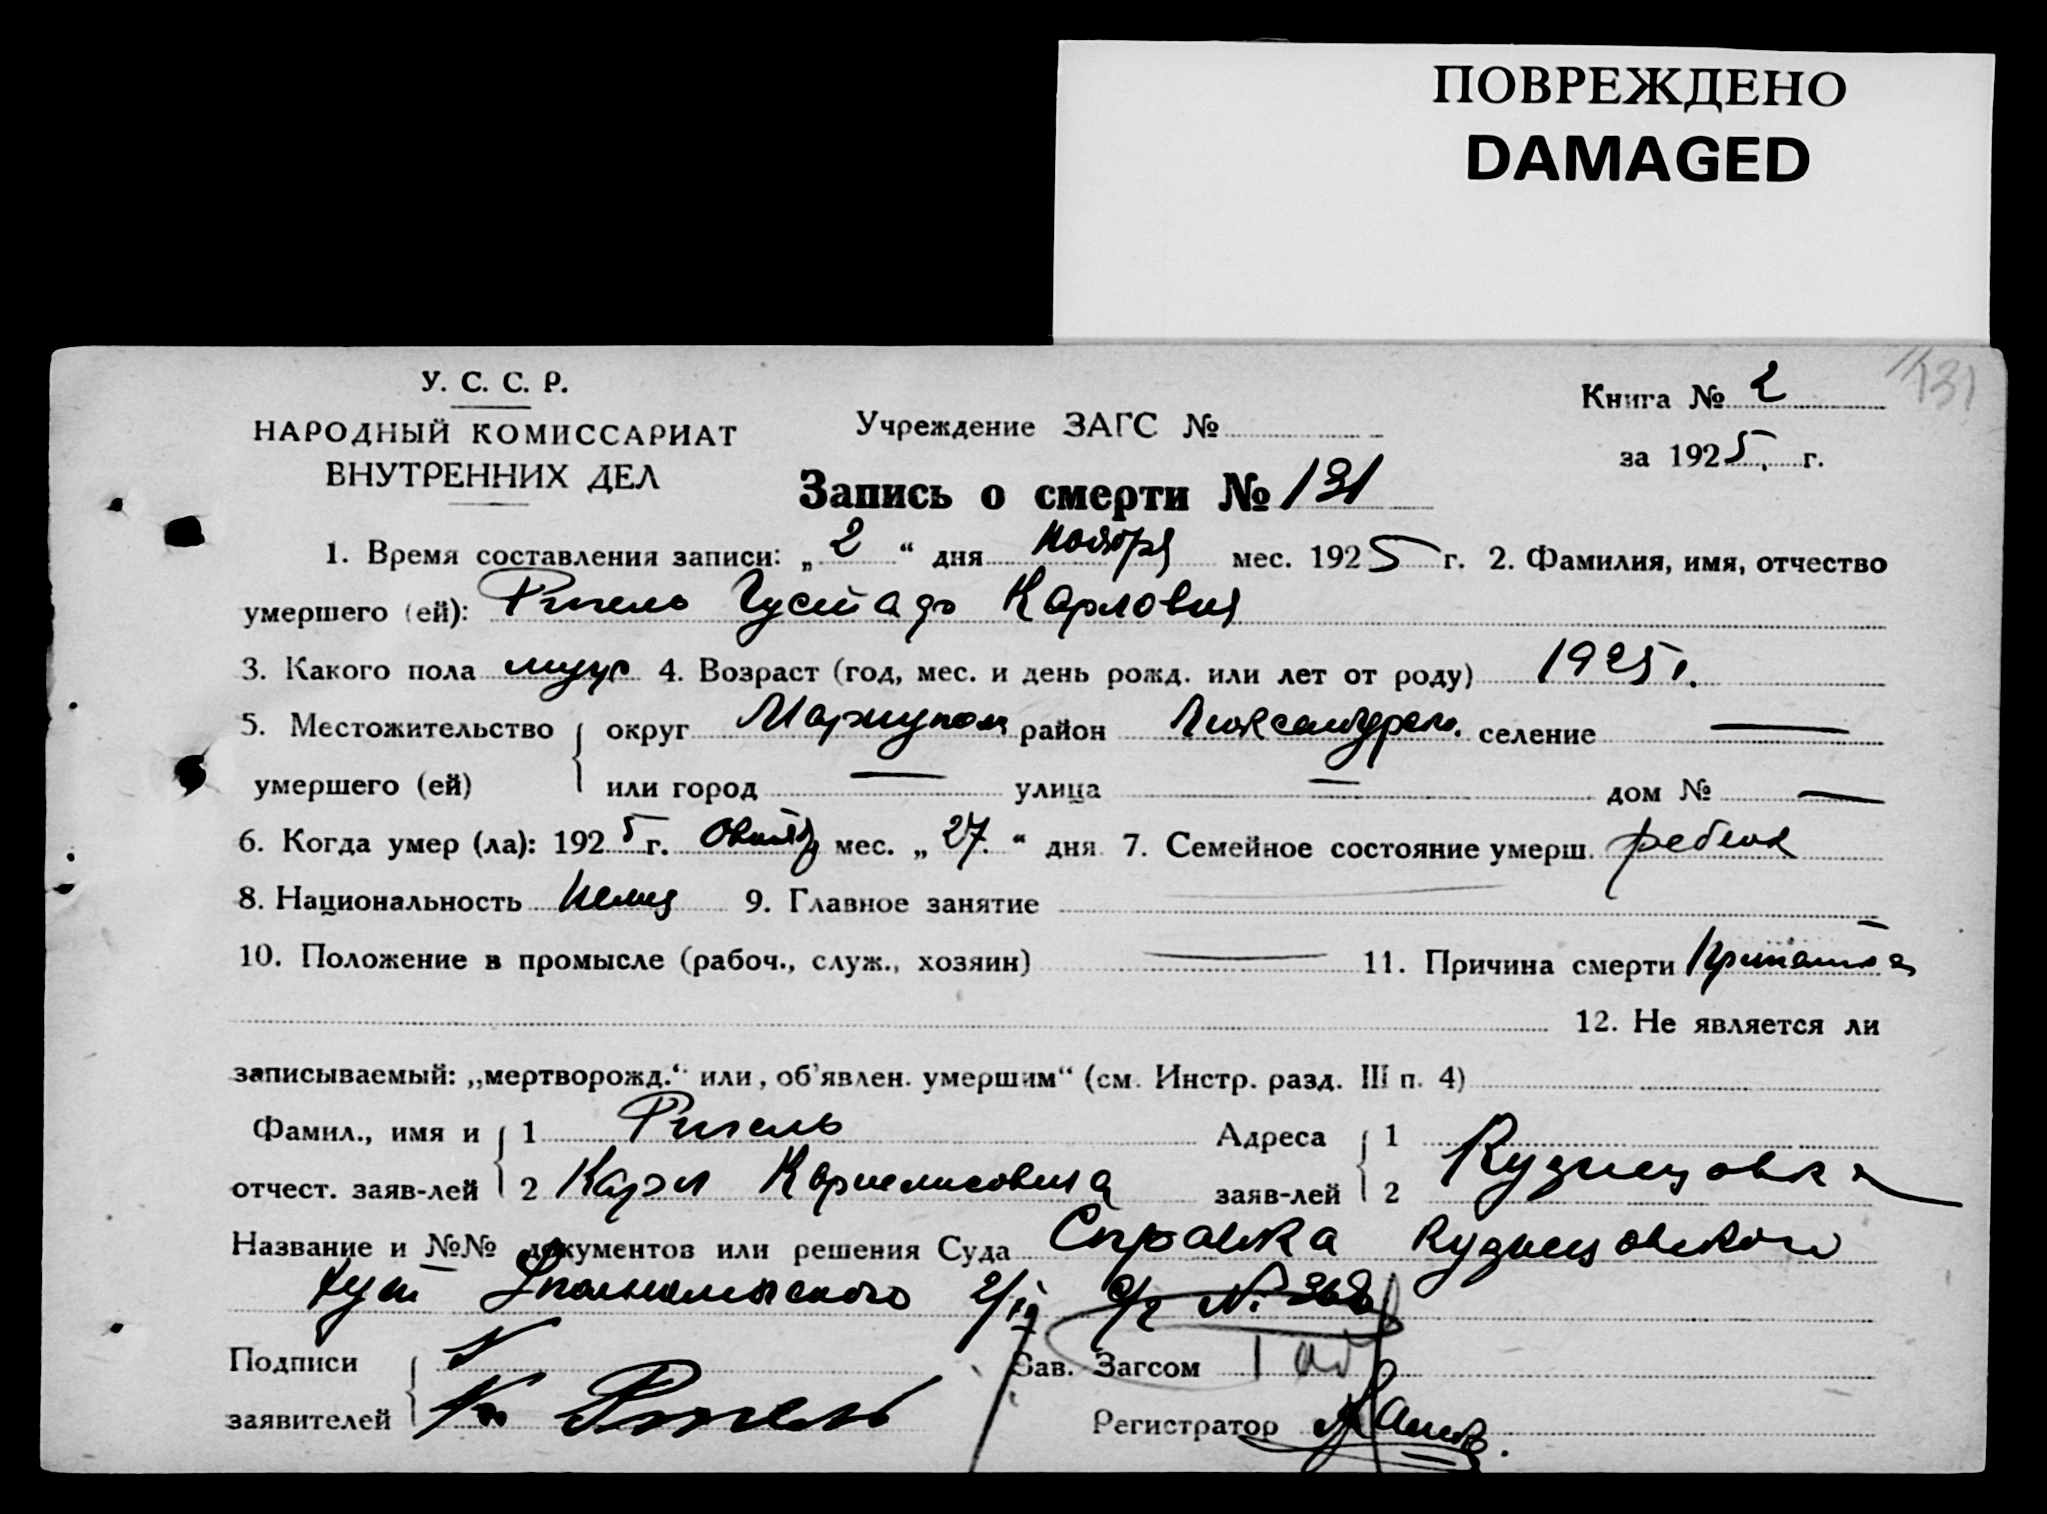 ПОВРЕЖДЕНО
DAMAGED
131
У. С. С. Р.
НАРОДНЫЙ КОМИССАРИАТ
ВНУТРЕННИХ ДЕЛ
Учреждение ЗАГС №
Книга № 2
за 1925 г.
Запись о смерти № 131
1. Время составления записи: „ 2 “ дня Ноября мес. 1925 г. 2. Фамилия, имя, отчество
умершего (ей): Ригель Густав Карлович
3. Какого пола муж 4. Возраст (год, мес. и день рожд. или лет от роду) 1925 г.
5. Местожительство округ Мариупол район Александров. селение —
умершего (ей) или город — улица — дом № —
6. Когда умер (ла): 1925 г. Октяб мес. „ 27. “ дня 7. Семейное состояние умерш. ребенок
8. Национальность Немец 9. Главное занятие —
10. Положение в промысле (рабоч., служ., хозяин) — 11. Причина смерти
12. Не является ли
записываемый: „мертворожд.“ или „об'явлен. умершим“ (см. Инстр. разд. III п. 4)
Фамил., имя и 1 Ригель Адреса 1 Кузнецовка
отчест. заяв-лей 2 Карл заяв-лей 2
Название и №№ документов или решения Суда Справка Кузнецовского
хут № 368
Подписи
Зав. Загсом
заявителей К Ригель Регистратор